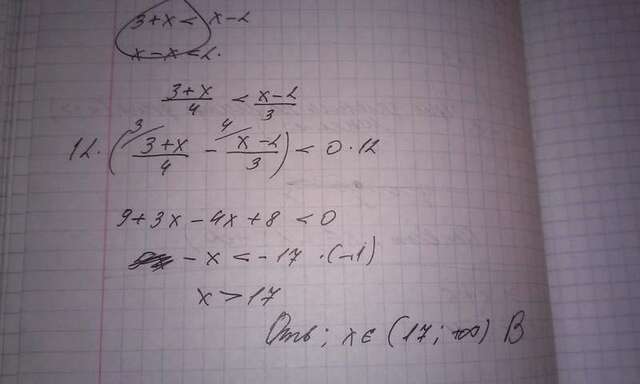 3+x < x-2
x-x<2.
3+x/4 < x-2/3
12·(3+x/4 - x-2/3) < 0·12
3 4
9+3x-4x+8 <0
-x <-17 ·(-1)
x>17
Отв; x∈ (17; +∞) В